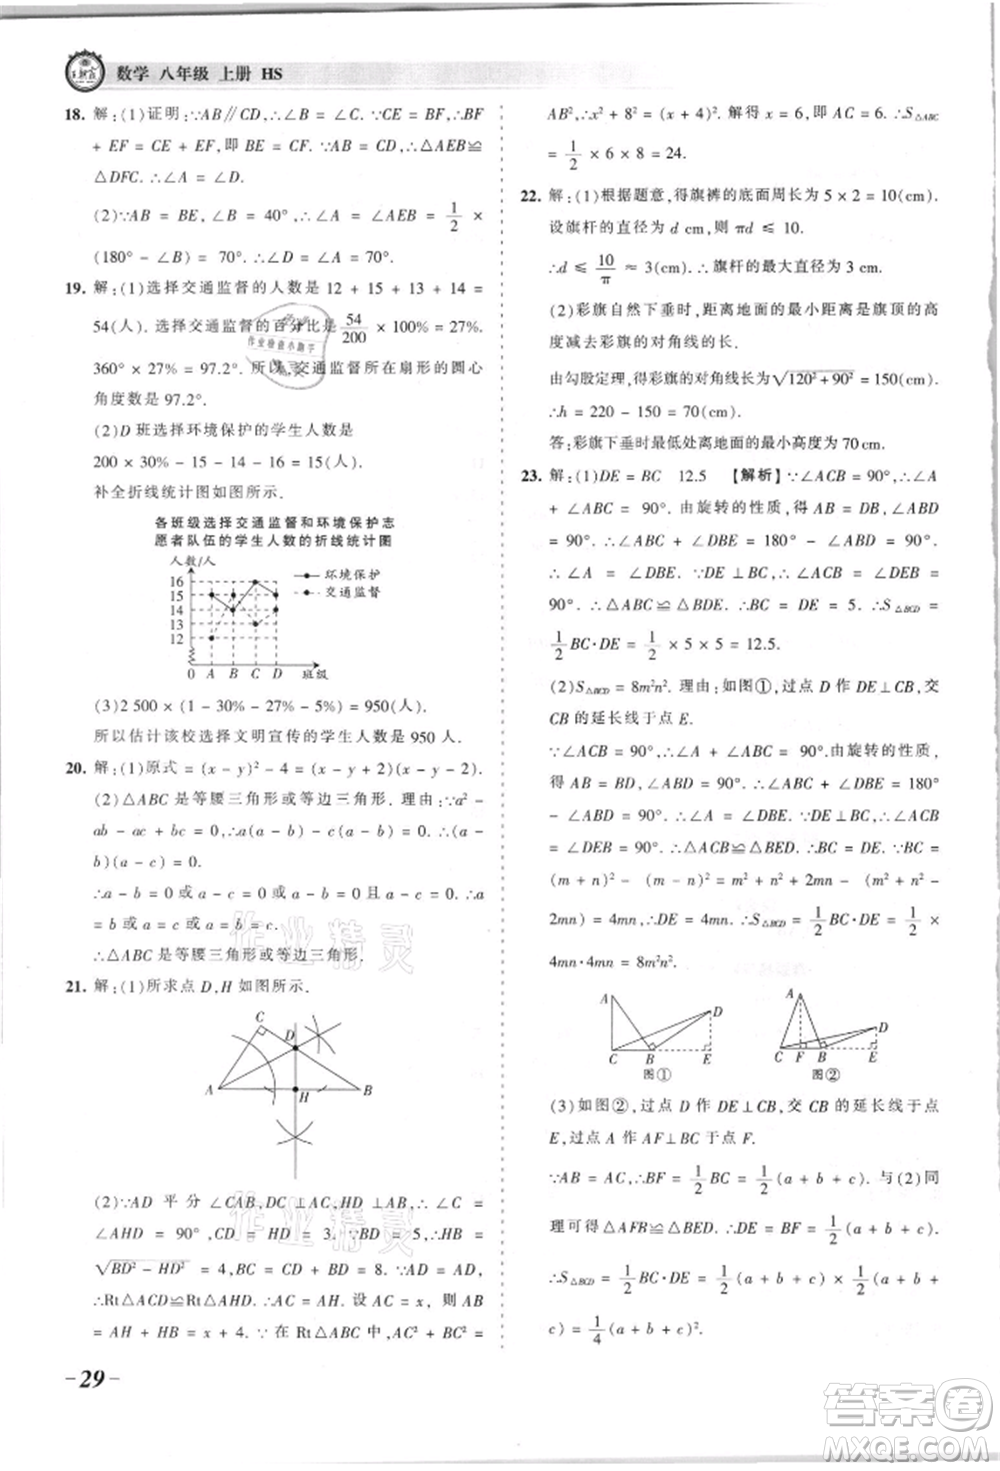 数学 八年级 上册 HS
18. 解：(1)证明：∵AB∥CD,∴∠B=∠C.∵CE=BF,∴BF
+EF=CE+EF,即BE=CF.∵AB=CD,∴△AEB≌
△DFC.∴∠A=∠D.
(2)∵AB=BE,∠B=40°,∴∠A=∠AEB=1/2×
(180°-∠B)=70°.∴∠D=∠A=70°.
19. 解：(1)选择交通监督的人数是12+15+13+14=
54(人).选择交通监督的百分比是54/200×100%=27%.
360°×27%=97.2°.所以,交通监督所在扇形的圆心
角度数是97.2°.
(2)D班选择环境保护的学生人数是
200×30%-15-14-16=15(人).
补全折线统计图如图所示.
各班级选择交通监督和环境保护志
愿者队伍的学生人数的折线统计图
人数/人
16
15
14
13
12
0 A B C D 班级
环境保护
交通监督
(3)2 500×(1-30%-27%-5%)=950(人).
所以估计该校选择文明宣传的学生人数是950人.
20. 解：(1)原式=(x-y)²-4=(x-y+2)(x-y-2).
(2)△ABC是等腰三角形或等边三角形.理由:∵a²-
ab-ac+bc=0,∴a(a-b)-c(a-b)=0.∴(a-
b)(a-c)=0.
∴a-b=0或a-c=0或a-b=0且a-c=0.∴a
=b或a=c或a=b=c.
∴△ABC是等腰三角形或等边三角形.
21. 解：(1)所求点D,H如图所示.
C
D
A
H
B
(2)∵AD平分∠CAB,DC⊥AC,HD⊥AB,∴∠C=
∠AHD=90°,CD=HD=3.∵BD=5,∴BH=
√BD²-HD²=4.∴BC=CD+BD=8.∵AD=AD,
∴Rt△ACD≌Rt△AHD.∴AC=AH.设AC=x,则AB
=AH+HB=x+4.∵在Rt△ABC中,AC²+BC²=
AB²,∴x²+8²=(x+4)².解得x=6,即AC=6.∴S△ABC
=1/2×6×8=24.
22. 解：(1)根据题意,得旗裤的底面周长为5×2=10(cm).
设旗杆的直径为d cm,则πd≤10.
∴d≤10/π≈3(cm).∴旗杆的最大直径为3 cm.
(2)彩旗自然下垂时,距离地面的最小距离是旗顶的高
度减去彩旗的对角线的长.
由勾股定理,得彩旗的对角线长为√120²+90²=150(cm).
∴h=220-150=70(cm).
答:彩旗下垂时最低处离地面的高度为70 cm.
23. 解：(1)DE=BC 12.5 【解析】∵∠ACB=90°,∴∠A
+∠ABC=90°.由旋转的性质,得AB=BD,∠ABD
=90°.∴∠ABC+∠DBE=180°-∠ABD=90°.
∴∠A=∠DBE.∵DE⊥BC,∴∠ACB=∠DEB=
90°.∴△ACB≌△BDE.∴BC=DE=5.∴S△BCD=
1/2BC·DE=1/2×5×5=12.5.
(2)S△BCD=8m²n².理由:如图①,过点D作DE⊥CB,交
CB的延长线于点E.
∵∠ACB=90°,∴∠A+∠ABC=90°.由旋转的性质,
得AB=BD,∠ABD=90°.∴∠ABC+∠DBE=180°-
∠ABD=90°.∴∠A=∠DBE.∵DE⊥BC,∴∠ACB=
∠DEB=90°.∴△ACB≌△BED.∴BC=DE.∵BC=
(m+n)²-(m-n)²=m²+n²+2mn-(m²+n²-
2mn)=4mn,∴DE=4mn.∴S△BCD=1/2BC·DE=1/2×
4mn·4mn=8m²n².
A
D
C B E
图①
A
D
C F B E
图②
(3)如图②,过点D作DE⊥CB,交CB的延长线于点
E,过点A作AF⊥BC于点F.
∵AB=AC,∴BF=1/2BC=1/2(a+b+c).与(2)同
理可得△AFB≌△BED.∴DE=BF=1/2(a+b+c).
∴S△BCD=1/2BC·DE=1/2(a+b+c)·1/2(a+b+
c)=1/4(a+b+c)².
-29-
作业精灵
作业精灵
作业检查小助手
答案卷
MXQE.COM